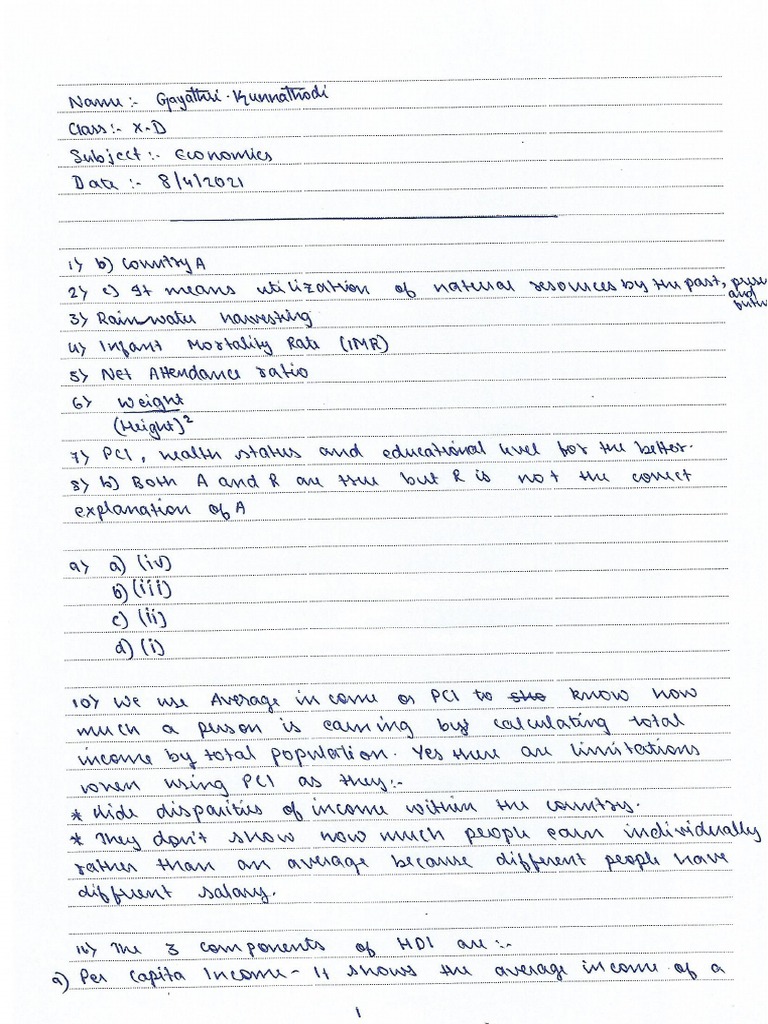 Name :- Gayathri . Kunnathodi
Class :- X-D
Subject :- Economics
Date :- 8/4/2021
1) b) Country A
2) c) It means utilization of natural resources by the past, present and future
3) Rain water harvesting
4) Infant Mortality Rate (IMR)
5) Net Attendance ratio
6) Weight
(Height)²
7) PCI, health status and educational level for the better.
8) b) Both A and R are true but R is not the correct
explanation of A
9) a) (iv)
b) (iii)
c) (ii)
d) (i)
10) We use Average income or PCI to know how
much a person is earning by calculating total
income by total population. Yes there are limitations
when using PCI as they:-
* Hide disparities of income within the country.
* They don't show how much people earn individually
rather than an average because different people have
different salary.
The 3 components of HDI are :-
a) Per Capita Income - It shows the average income of a
1